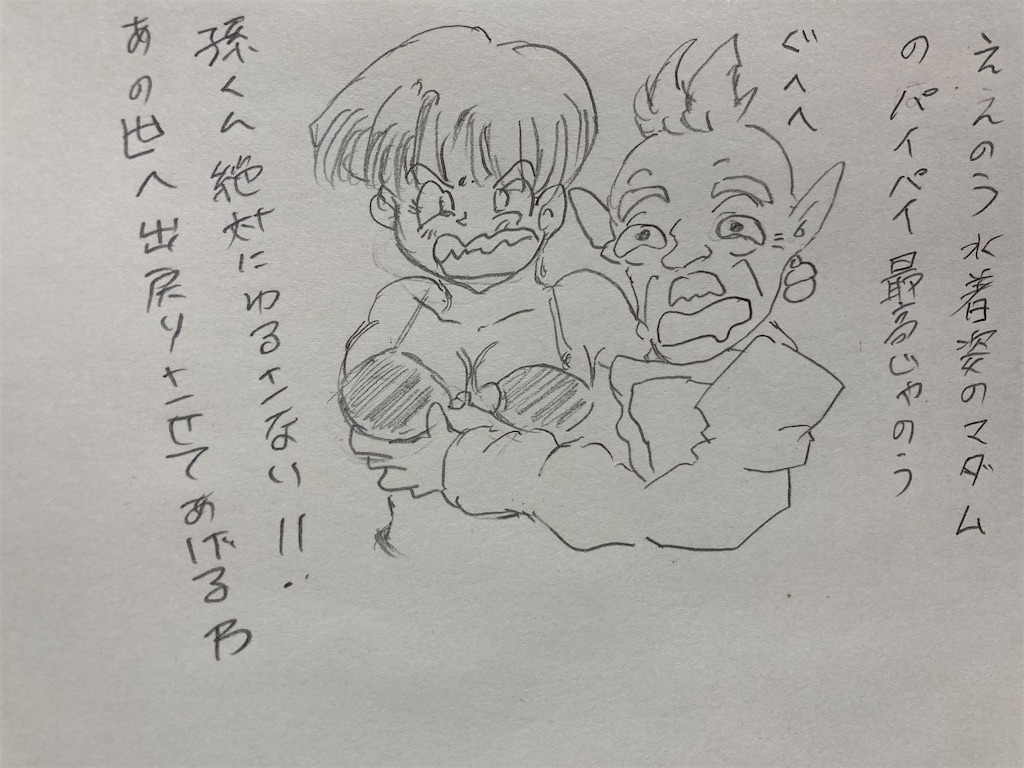 ええのう 水着姿のマダム
のパイパイ最高じゃのう
ぐへへ
孫くん絶対にゆるさない!!
あの世へ出戻りさせてあげるわ